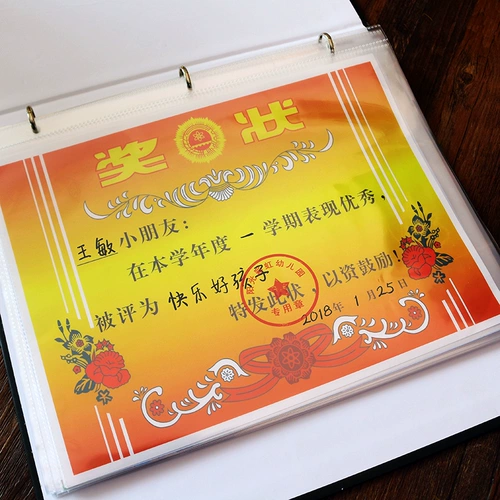 奖状
王敏小朋友：
在本学年度一学期表现优秀，
被评为 快乐好孩子
特发此状，以资鼓励！
红幼儿园
专用章
2018年1月25日